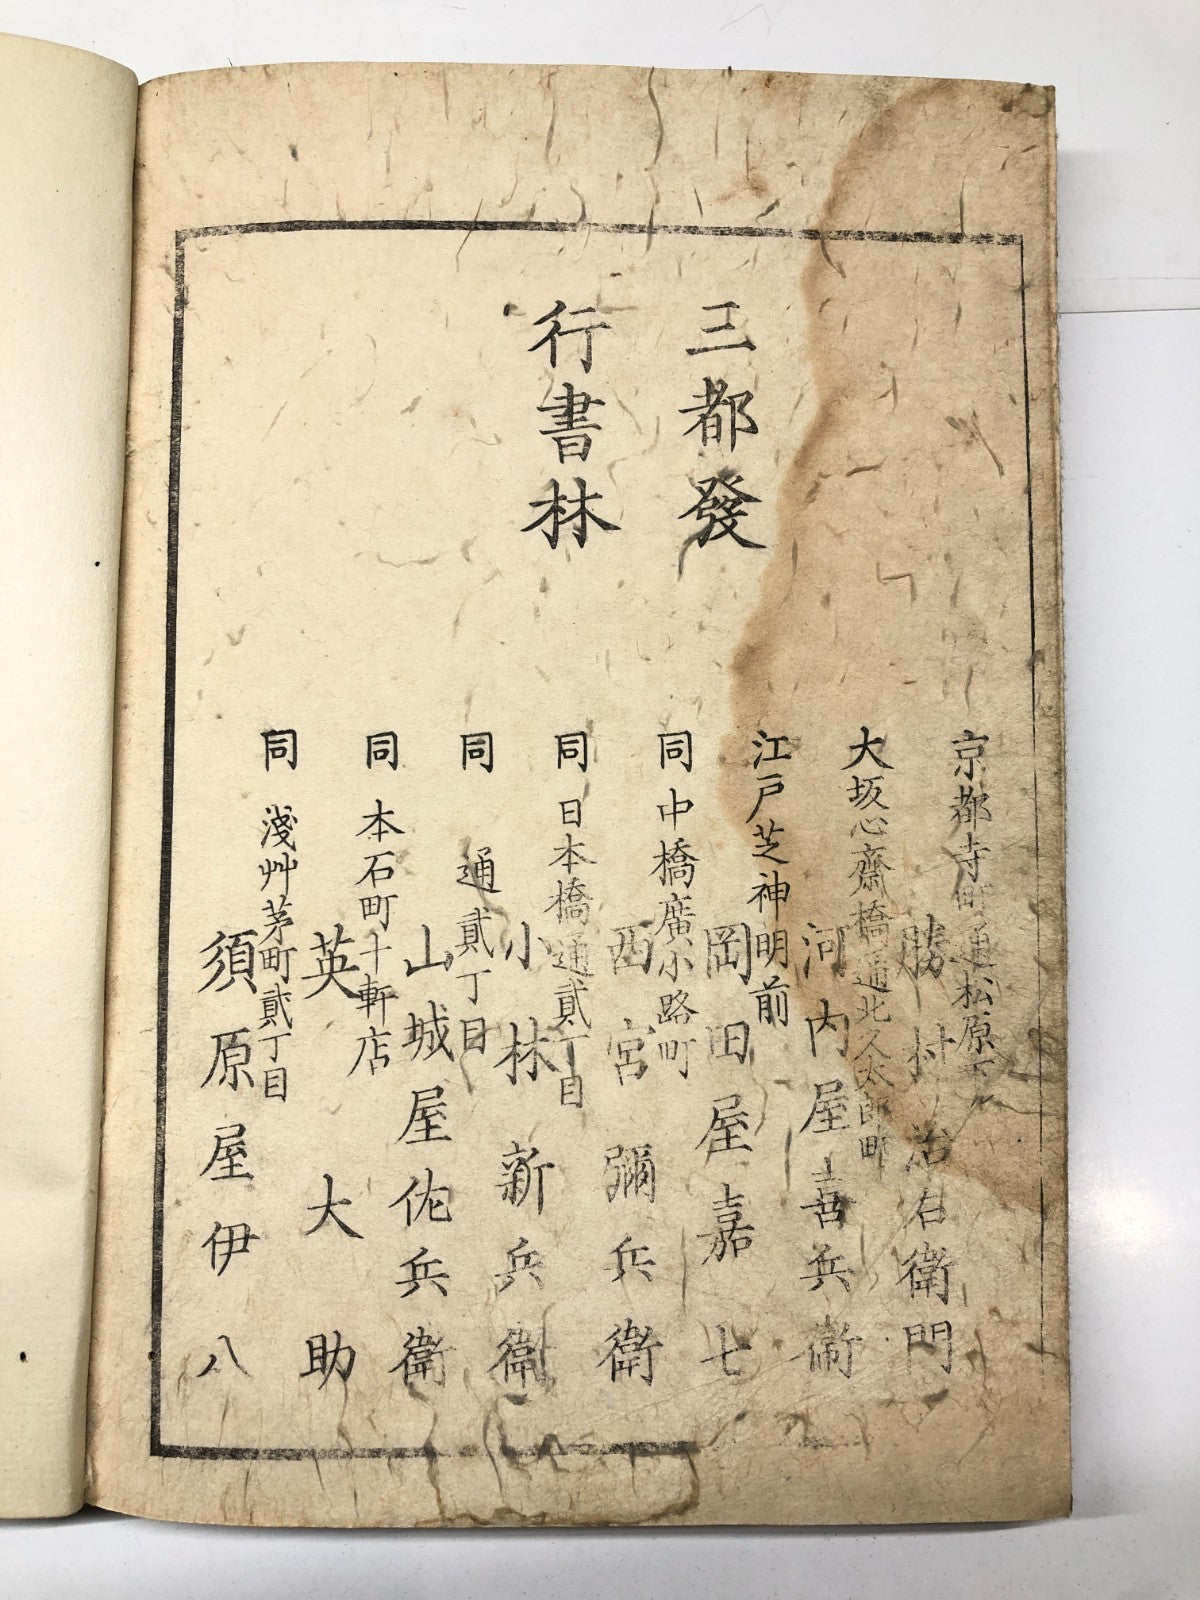 三都發
行書林
京都寺町通松原下
勝村治右衛門
大坂心齋橋通北久太郎町
河内屋喜兵衛
江戸芝神明前
岡田屋嘉七
同中橋廣小路町
西宮彌兵衛
同日本橋通貳丁目
小林新兵衛
同通貳丁目
山城屋佐兵衛
同本石町十軒店
英大助
同淺艸茅町貳丁目
須原屋伊八